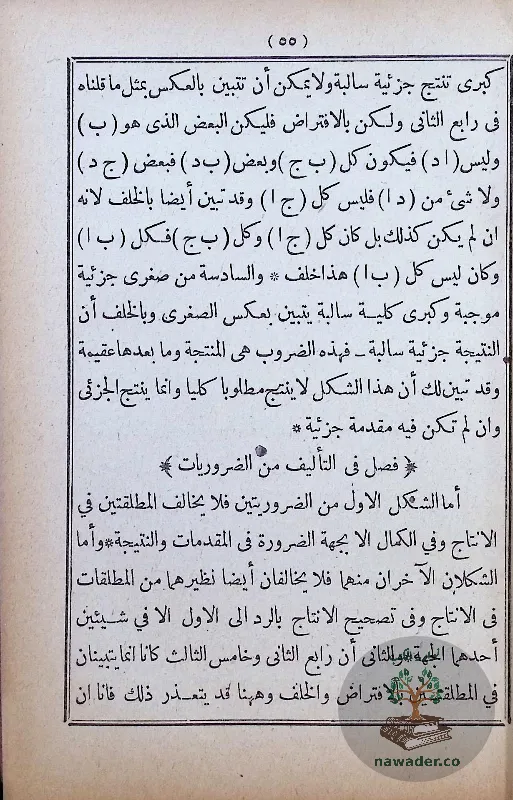 (٥٥)
كبرى تنتج جزئية سالبة ولا يمكن أن تتبين بالعكس بمثل ما قلناه
فى رابع الثانى ولكن بالافتراض فليكن البعض الذى هو (ب)
وليس (ا د) فيكون كل (ب ج) وبعض (ب د) فبعض (ج د)
ولا شئ من (د ا) فليس كل (ج ا) وقد تبين أيضا بالخلف لانه
ان لم يكن كذلك بل كان كل (ج ا) وكل (ب ج) فكل (ب ا)
وكان ليس كل (ب ا) هذا خلف * والسادسة من صغرى جزئية
موجبة وكبرى كلية سالبة يتبين بعكس الصغرى وبالخلف أن
النتيجة جزئية سالبة ـ فهذه الضروب هى المنتجة وما بعدها عقيمة
وقد تبين لك أن هذا الشكل لا ينتج مطلوبا كليا وانما ينتج الجزئى
وان لم تكن فيه مقدمة جزئية *
﴿ فصل فى التأليف من الضروريات ﴾
أما الشكل الاول من الضروريتين فلا يخالف المطلقتين في
الانتاج وفي الكمال الا بجهة الضرورة فى المقدمات والنتيجة * وأما
الشكلان الآخران منهما فلا يخالفان أيضا نظيرهما من المطلقات
فى الانتاج وفى تصحيح الانتاج بالرد الى الاول الا في شيئين
أحدهما الجهة * والثانى أن رابع الثانى وخامس الثالث كانا انما يتبينان
في المطلقتين بالافتراض والخلف وههنا قد يتعذر ذلك فانا ان
nawader.co